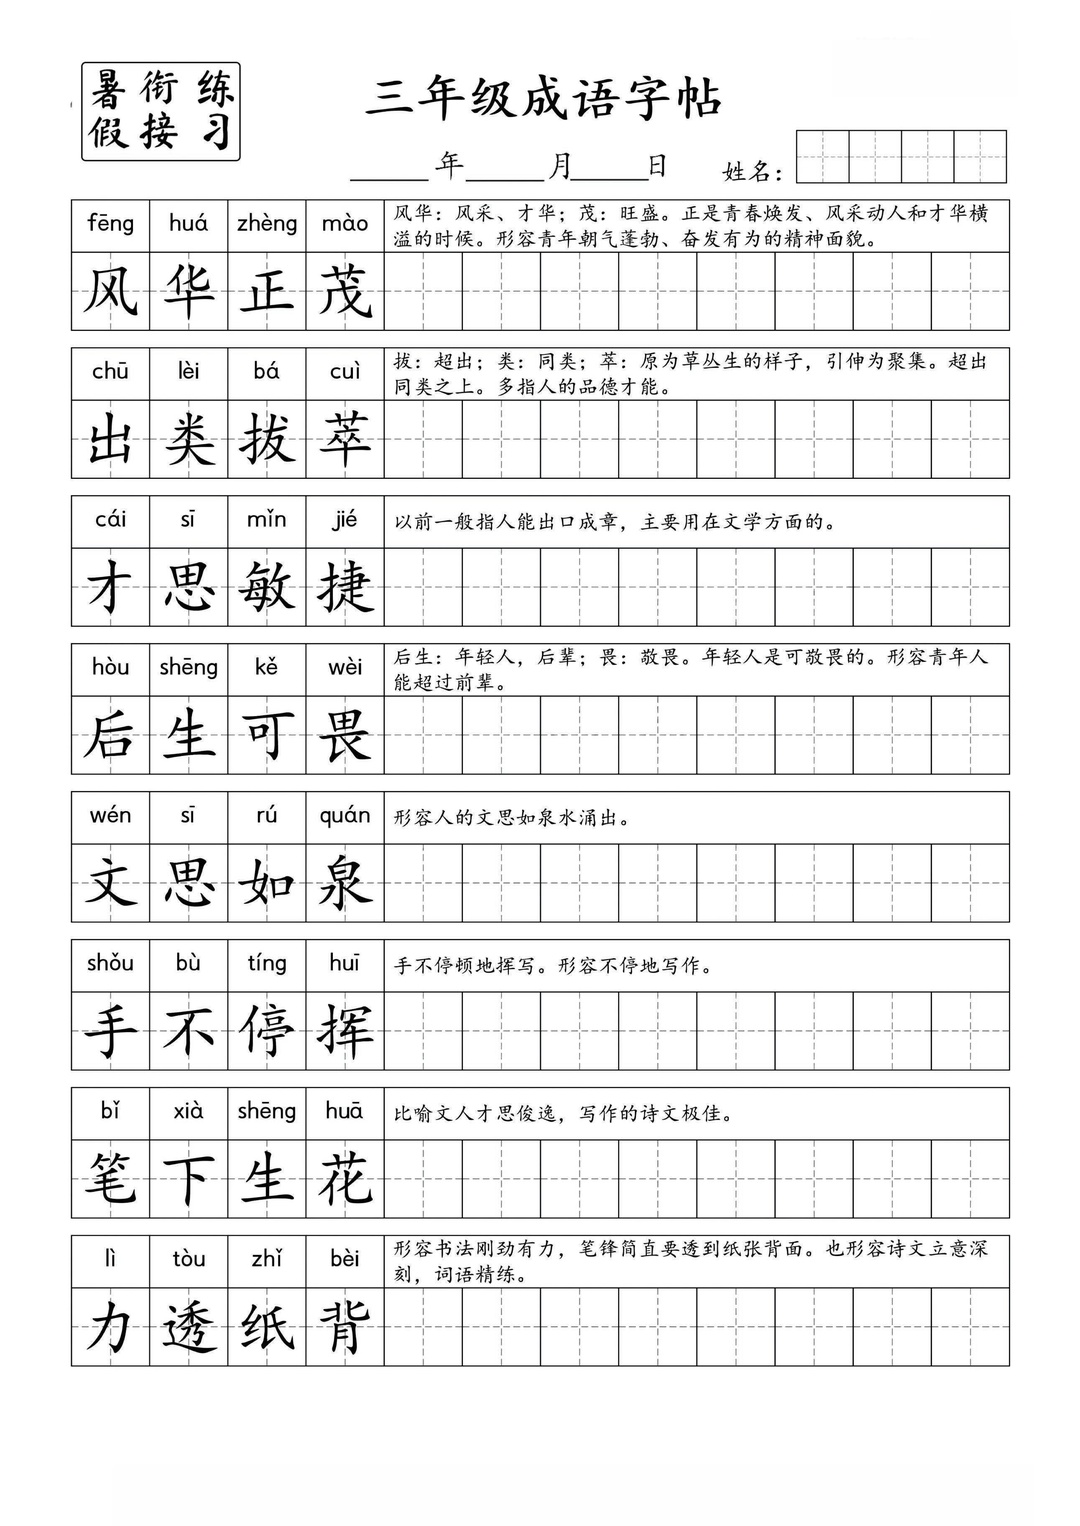 暑 衔 练
假 接 习
三年级成语字帖
年 月 日
姓名：
fēng huá zhèng mào
风华：风采、才华；茂：旺盛。正是青春焕发、风采动人和才华横
溢的时候。形容青年朝气蓬勃、奋发有为的精神面貌。
风 华 正 茂
chū lèi bá cuì
拔：超出；类：同类；萃：原为草丛生的样子，引伸为聚集。超出
同类之上。多指人的品德才能。
出 类 拔 萃
cái sī mǐn jié
以前一般指人能出口成章，主要用在文学方面的。
才 思 敏 捷
hòu shēng kě wèi
后生：年轻人，后辈；畏：敬畏。年轻人是可敬畏的。形容青年人
能超过前辈。
后 生 可 畏
wén sī rú quán
形容人的文思如泉水涌出。
文 思 如 泉
shǒu bù tíng huī
手不停顿地挥写。形容不停地写作。
手 不 停 挥
bǐ xià shēng huā
比喻文人才思俊逸，写作的诗文极佳。
笔 下 生 花
lì tòu zhǐ bèi
形容书法刚劲有力，笔锋简直要透到纸张背面。也形容诗文立意深
刻，词语精练。
力 透 纸 背